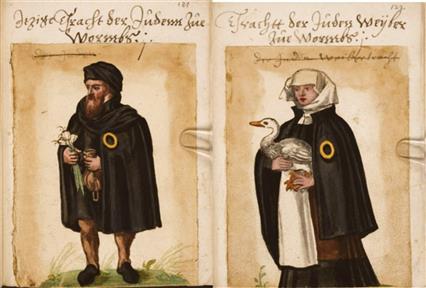 Jezige Tracht der Judenn Zue
Wormbs
Trachtt der Juden Weyber
Zue Wormbs
der Juden Weiber tracht